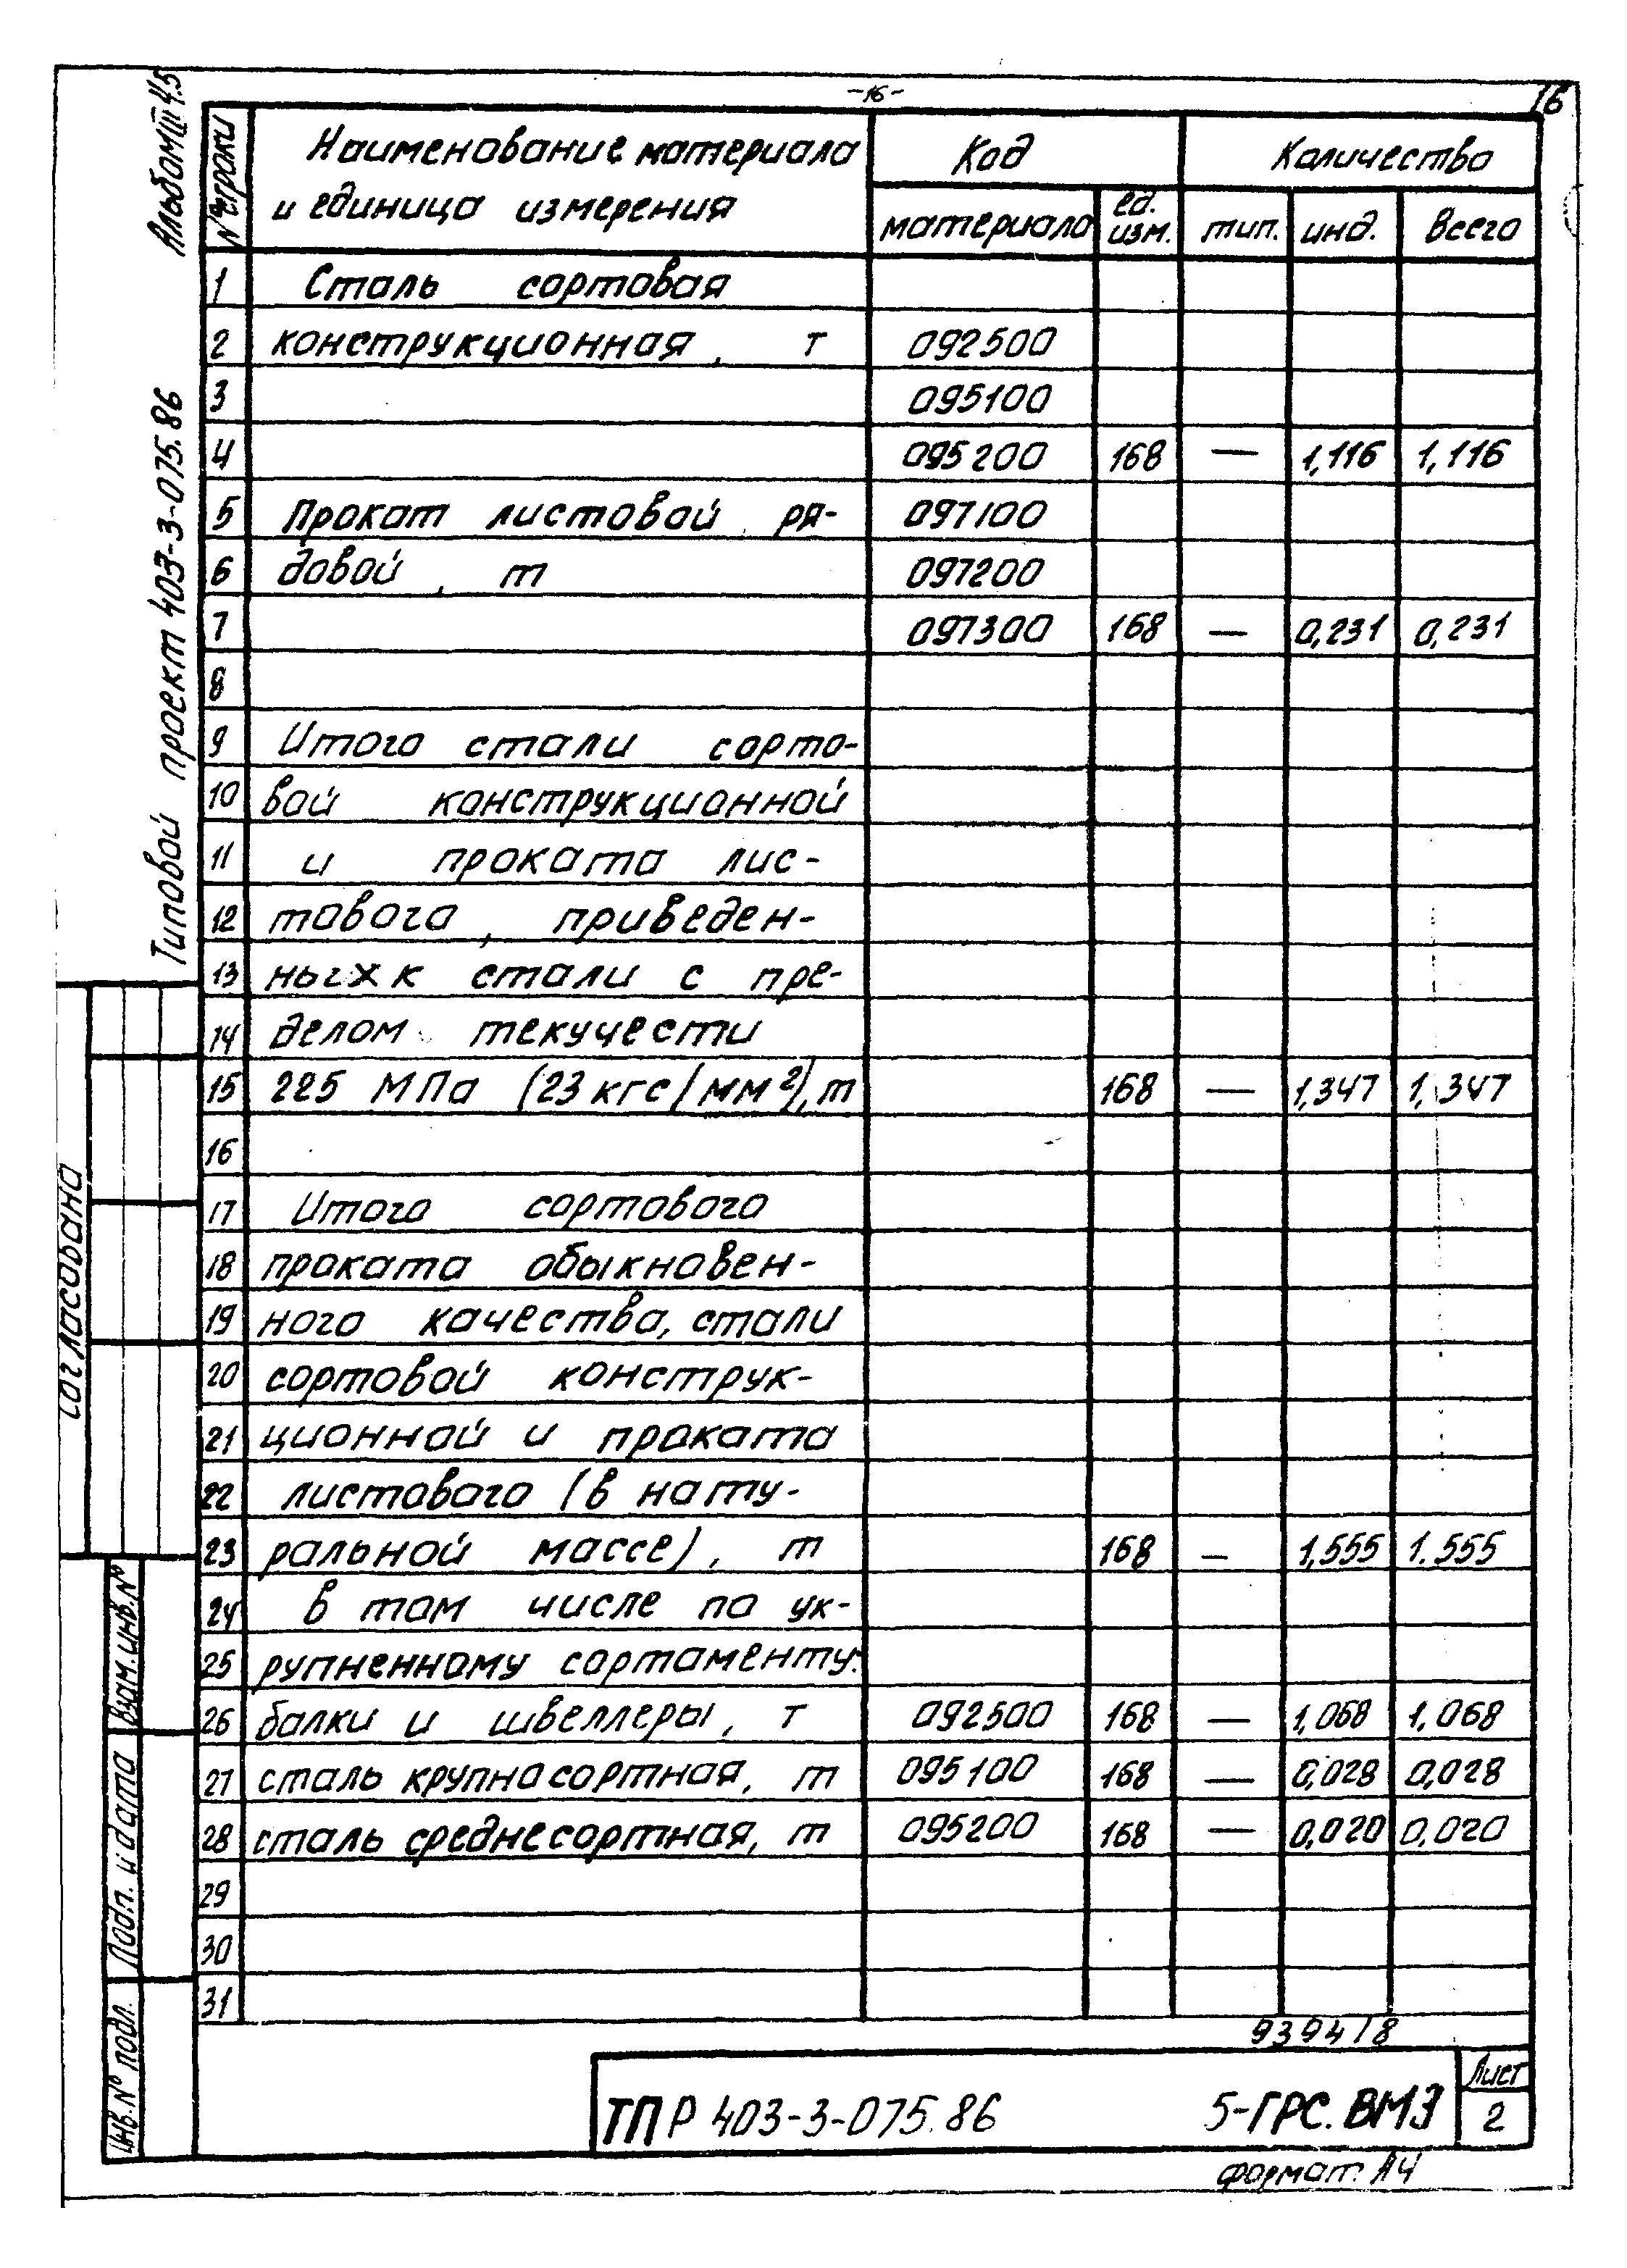 -16-
16
Альбом III ч.5
Типовой проект 403-3-075.86
№ строки
Наименование материала
и единица измерения
Код
Количество
материала
ед. изм.
тип.
инд.
Всего
1 Сталь сортовая
2 конструкционная, т 092500
3 095100
4 095200 168 — 1,116 1,116
5 Прокат листовой ря- 097100
6 довой, т 097200
7 097300 168 — 0,231 0,231
8
9 Итого стали сорто-
10 вой конструкционной
11 и проката лис-
12 тового, приведен-
13 ных к стали с пре-
14 делом текучести
15 225 МПа (23 кгс/мм²), т 168 — 1,347 1,347
16
17 Итого сортового
18 проката обыкновен-
19 ного качества, стали
20 сортовой конструк-
21 ционной и проката
22 листового (в нату-
23 ральной массе), т 168 — 1,555 1.555
24 в том числе по ук-
25 рупненному сортаменту:
26 балки и швеллеры, т 092500 168 — 1,068 1.068
27 сталь крупносортная, т 095100 168 — 0,028 0,028
28 сталь среднесортная, т 095200 168 — 0,020 0,020
29
30
31
Согласовано
Взам. инв. №
Подп. и дата
Инв. № подл.
9394/8
ТПР 403-3-075.86
5-ГРС. ВМ3
Лист
2
формат А4